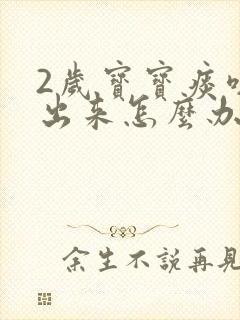 2歲寶寶痰
出来怎麼办
余生不說再見